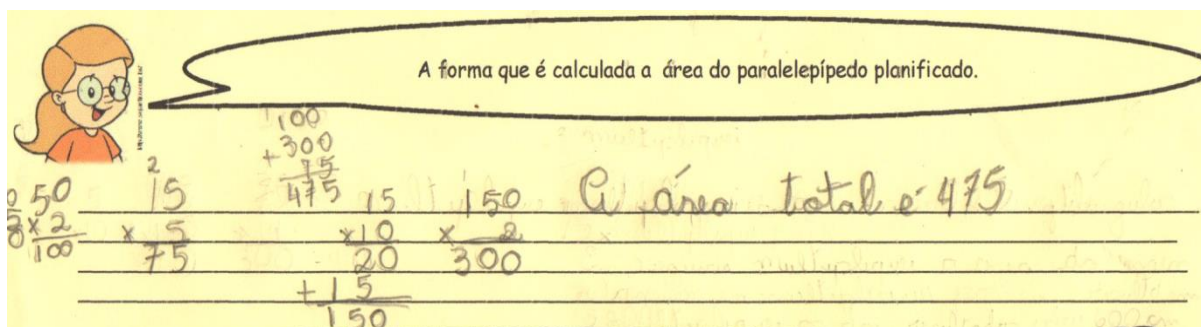 A forma que é calculada a área do paralelepípedo planificado.
100
+ 300
75
475
50
× 2
100
2
15
× 5
75
15
×10
20
+15
150
150
× 2
300
A área total é 475